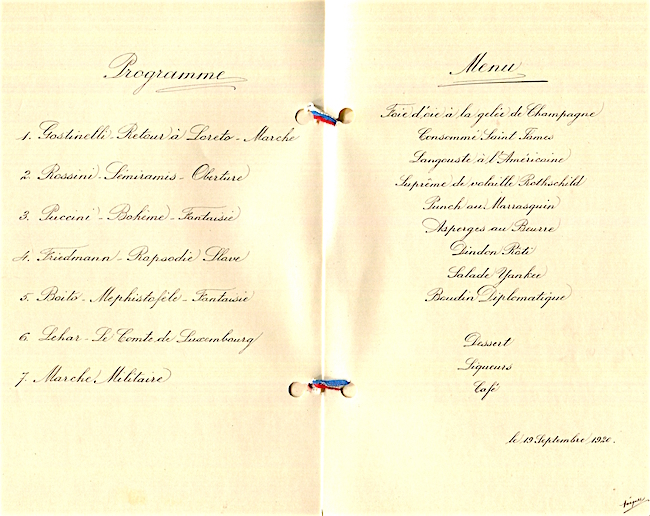 Programme
1. Gostinelli - Retour à Loreto - Marche
2. Rossini - Sémiramis - Oberture
3. Puccini - Bohème - Fantaisie
4. Friedmann - Rapsodie Slave
5. Boito - Mephistofèle - Fantaisie
6. Lehar - Le Comte de Luxembourg
7. Marche Militaire
Menu
Foie d'oie à la gelée de Champagne
Consommé Saint James
Langouste à l'Américaine
Suprême de volaille Rothschild
Punch au Marrasquin
Asperges au Beurre
Dindon Rôti
Salade Yankee
Boudin Diplomatique
Dessert
Liqueurs
Café
le 19 Septembre 1920.